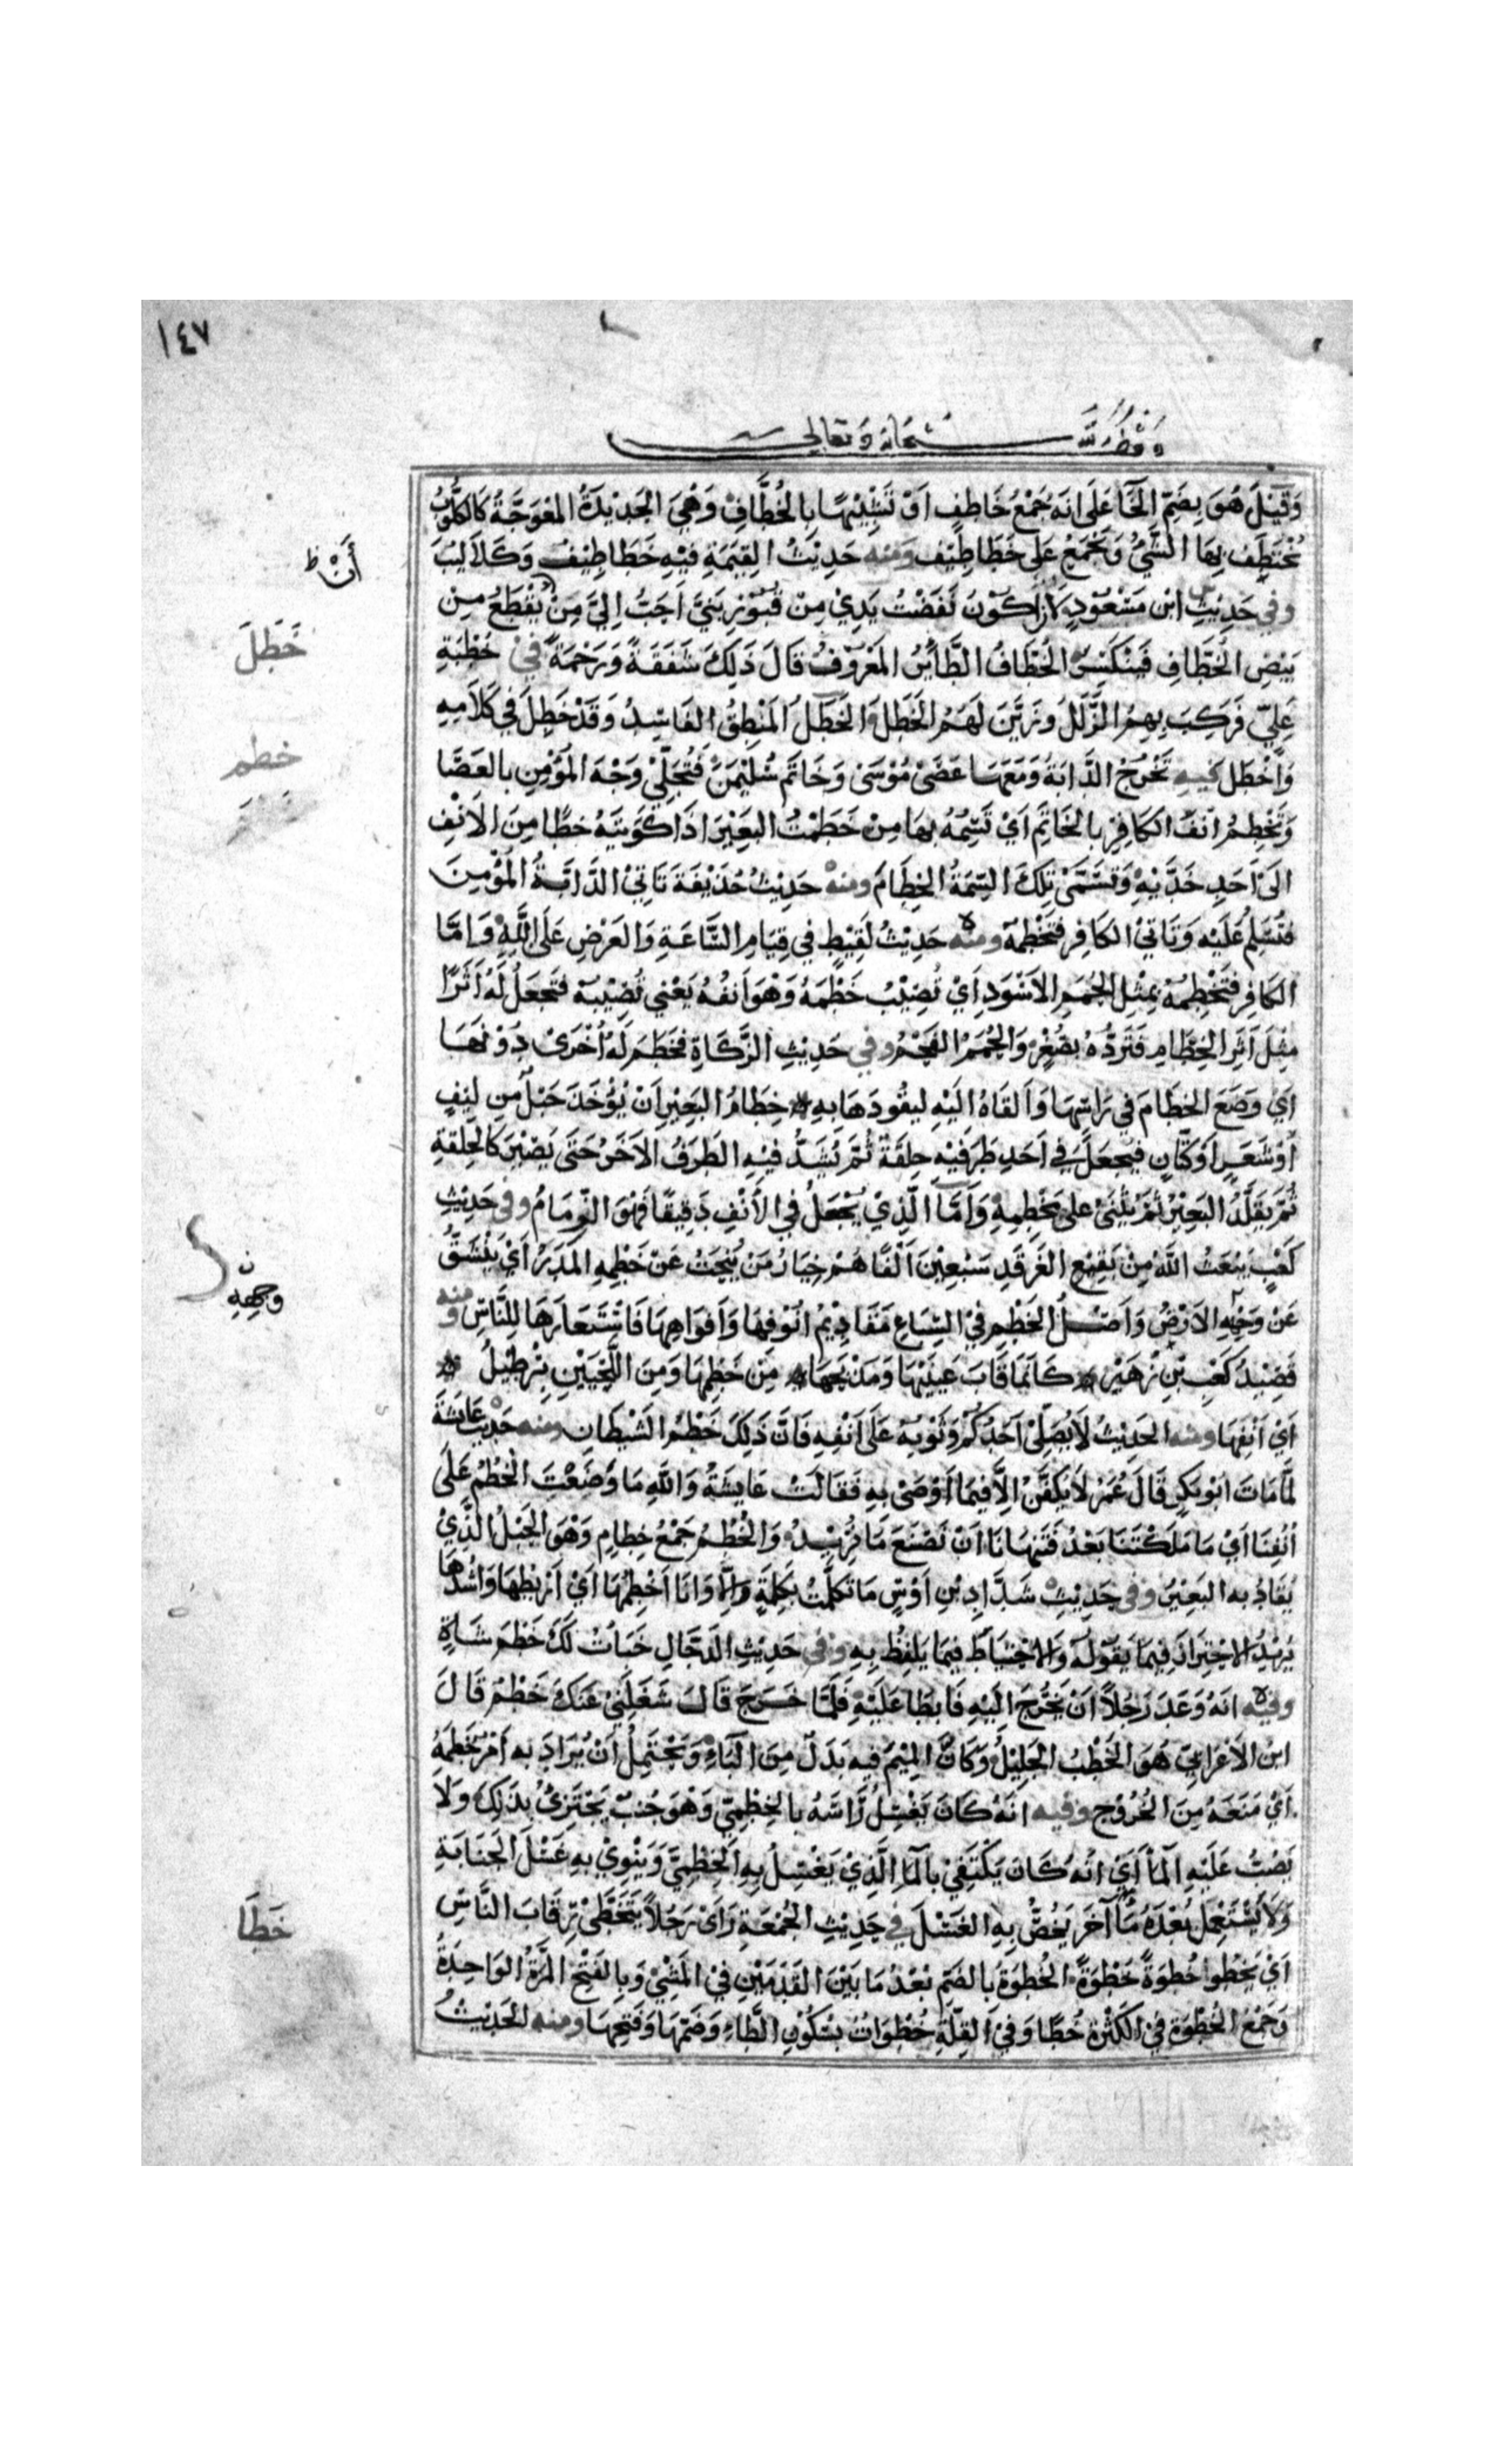 ١٤٧
وقف لله سبحانه وتعالى
وَقِيْلَ هُوَ بِضَمِّ الخَآءِ عَلَى انَهُ جَمْعُ خَاطِفٍ اَوْ تَشْبِيْهًا بِالخُطَّافِ وَهْيَ الحَدِيْدَةُ المُعْوَجَّةُ كَالكَلُّوْبِ
يُخْتَطَفُ بِهَا الشَّيْءُ وَيُجْمَعُ عَلَى خَطَاطِيْفَ وَمنه حَدِيْثُ القِيٰمَةِ فِيْهِ خَطَاطِيْفُ وَكَلَالِيْبُ
أَنْ ظ
وفي حَدِيْثِ ابْنِ مَسْعُوْدٍ لَاَنْ اَكُوْنَ نَفَضْتُ يَدِيْ مِنْ قُبُوْرِ بَنِيَّ اَحَبُّ اِلَيَّ مِنْ يَقْطَعَ مِنْ
خَطَلَ
بَيْضِ الخُطَّافِ فَيَنْكَسِرُ الخُطَّافُ الطَّائِرُ المَعْرُوْفُ قَالَ ذَلِكَ شَفَقَةً وَرَحْمَةً في خُطْبَةِ
عَلِيٍّ فَرَكِبَ بِهِمُ الزَّلَلَ وَزَيَّنَ لَهُمُ الخَطَلَ وَالخَطَلُ المَنْطِقُ الفَاسِدُ وَقَدْ خَطِلَ فِي كَلَامِهِ
خطم
وَاَخْطَلَ فيه تَخْرُجُ الدَّابَةُ وَمَعَهَا عَصَى مُوْسَى وَخَاتَمُ سُلَيْمٰنَ فَتُجَلِّيْ وَجْهَ المُؤْمِنِ بِالعَصَا
وَتَخْطِمُ اَنْفَ الكَافِرِ بِالخَاتَمِ اَيْ تَسِمُهُ بِهَا مِنْ خَطَمْتُ البَعِيْرَ اذَا كَوَيْتَهُ خطًّا مِنَ الاَنْفِ
الَى اَحَدِ خَدَّيْهِ وَتُسَمَّى تِلْكَ السِّمَةُ الخِطَامَ ومنه حَدِيْثُ حُذَيْفَةَ تَاتِيْ الدَّابَّةُ المُؤْمِنَ
فَتُسَلِّمُ عَلَيْهِ وَتَاتِيْ الكَافِرَ فَتَخْطِمُهُ ومنه حَدِيْثُ لَقِيْطٍ فِي قِيَامِ السَّاعَةِ وَالعَرْضِ عَلَى اللَّهِ وَاِمَّا
الكَافِرُ فَتَخْطِمُهُ بِمِثْلِ الحُمَمِ الاَسْوَدِ اَيْ تُصِيْبُ خَطْمَهُ وَهْوَ اَنْفُهُ يَعْنِي تُصِيْبُهُ فَتَجْعَلُ لَهُ اَثَرًا
مِثْلَ اَثَرِ الخِطَامِ فَتَرُدُّهُ بِصُغْرٍ وَالحُمَمُ الفَحْمُ وفي حَدِيْثِ الزَّكَاةِ فَخَطَمَ لَهُ اُخْرَى دُوْنَهَا
اَيْ وَضَعَ الخِطَامَ فِي رَاسِهَا وَاَلقَاهُ الَيْهِ لِيَقُودَهَا بِهِ * خِطَامُ البَعِيْرِ اَنْ يُؤْخَذَ حَبْلٌ مِن لِيْفٍ
اَوْ شَعَرٍ اَوْ كَتَّانٍ فَيُجْعَلَ فِي اَحَدِ طَرَفَيْهِ حَلقَةٌ ثُمَّ يُشَدُّ فِيْهِ الطَرَفُ الاٰخَرُ حَتَّى يَصِيْرَ كَالحَلقَةِ
ثُمَّ يُقَلَّدُ البَعِيْرُ ثُمَّ يُثَنَّى عَلَى مَخْطِمِهِ وَاَمَّا الَّذِيْ يُجْعَلُ فِي الأَنْفِ دَقِيقًا فَهْوَ الزِّمَامُ وفي حَدِيْثِ
كَعْبٍ يَبْعَثُ اللَّهُ مِنْ بَقِيْعِ الغَرْقَدِ سَبْعِيْنَ اَلْفًا هُمْ خِيَارُ مَنْ يَنْحَتُّ عَنْ خَطْمِهِ المَدَرُ اَيْ يَنْشَقُّ
وجهه ن
عَنْ وَجْهِهِ الاَرْضُ وَاَصْلُ الخَطْمِ فِي السِّبَاعِ مَقَادِيْمُ اُنُوْفِهَا وَاَفْوَاهِهَا فَاسْتَعَارَهَا لِلنَّاسِ ومنه
قَصِيْدُ كَعْبِ بْنِ زُهَيْرٍ * كَاَنَّمَا قَابَ عَيْنَيْهَا وَمَذْبَحَهَا * مِنْ خَطْمِهَا وَمِنَ اللَّحْيَيْنِ بِرْطِيْلُ *
اَيْ اَنْفِهَا ومنه الحَدِيْثُ لَا يُصَلِّيْ اَحَدُكُمْ وَثَوْبُهُ عَلَى اَنْفِهِ فَاِنَّ ذَلِكَ خَطْمُ الشَّيْطَانِ ومنه حَدِيْثُ عَائِشَةَ
لَمَّا مَاتَ ابُوْ بَكْرٍ قَالَ عُمَرُ لَا يُكَفَّنُ اِلَّا فِيْمَا اَوْصَى بِهِ فَقَالَتْ عَايِشَةُ وَاللَّهِ مَا وَضَعْتَ الخُطُمَ عَلَى
اُنُفِنَا اَيْ مَا مَلَكْتَنَا بَعْدُ فَتَنْهَانَا اَنْ نَصْنَعَ مَا نُرِيْدُ وَالخُطُمُ جَمْعُ خِطَامٍ وَهْوَ الحَبْلُ الَّذِيْ
يُقَادُ بِهِ البَعِيْرُ وفي حَدِيْثِ شَدَّادِ بْنِ اَوْسٍ مَا تَكَلَّمْتُ بِكَلِمَةٍ اِلَّا وَانَا اَخْطِمُهَا اَيْ اَرْبِطُهَا وَاَشُدُّهَا
يُرِيْدُ الاحْتِرَازَ فِيْمَا يَقُوْلُهُ وَالاحْتِيَاطَ فِيْمَا يَلفِظُ بِهِ وفي حَدِيْثِ الدَجَّالِ خَبَاْتُ لَكَ خَطْمَ شَاةٍ
وفيه انَهُ وَعَدَ رَجُلاً اَنْ يَخْرُجَ الَيْهِ فَابْطَا عَلَيْهِ فَلَمَّا خَرَجَ قَالَ شَغَلَنِيْ عَنْكَ خَطْمٌ قَالَ
ابنُ الاَعْرَابِيِّ هُوَ الخَطْبُ الجَلِيْلُ وَكَاَنَّ المِيْمَ فِيهِ بَدَلٌ مِنَ البَاءِ وَيَحْتَمِلُ اَنْ يُرَادَ بِهِ اَمْرٌ خَطَمَهُ
اَيْ مَنَعَهُ مِنَ الخُرُوْجِ وفيه انَهُ كَانَ يَغْسِلُ رَاسَهُ بِالخِطْمِيِّ وَهْوَ جُنُبٌ يَجْتَزِئُ بِذَلِكَ وَلَا
يَصُبُّ عَلَيْهِ المَآءَ اَيْ انَهُ كَانَ يَكْتَفِيْ بِالمَآءِ الَّذِيْ يَغْسِلُ بِهِ الخِطْمِيَّ وَيَنْوِيْ بِهِ غُسْلَ الجَنَابَةِ
خَطَا
وَلَا يَسْتَعْمِلُ بَعْدَهُ مَاءً آخَرَ يَخُصُّ بِهِ الغَسْلَ في حَدِيْثِ الجُمْعَةِ رَاَى رَجُلاً يَتَخَطَّى رِقَابَ النَّاسِ
اَيْ يَخْطُوا خُطْوَةً خُطْوَةً الخُطْوَةُ بِالضَمِّ بُعْدُ مَا بَيْنَ القَدَمَيْنِ فِيْ المَشْيِ وَبِالفَتْحِ المَرَّةُ الوَاحِدَةُ
وَجَمْعُ الخُطْوَةِ فِيْ الكَثْرَةِ خُطًا وَفِيْ القِلَّةِ خُطْوَاتٌ بِسُكُوْنِ الطَّاءِ وَضَمِّهَا وَفَتْحِهَا ومنه الحَدِيْثُ